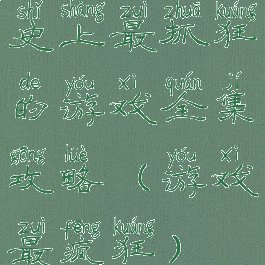 shǐ shàng zuì zhuā kuáng
史上最抓狂
de yóu xì quán jí
的游戏全集
gōng lüè yóu xì
攻略（游戏
zuì fēng kuáng
最疯狂）